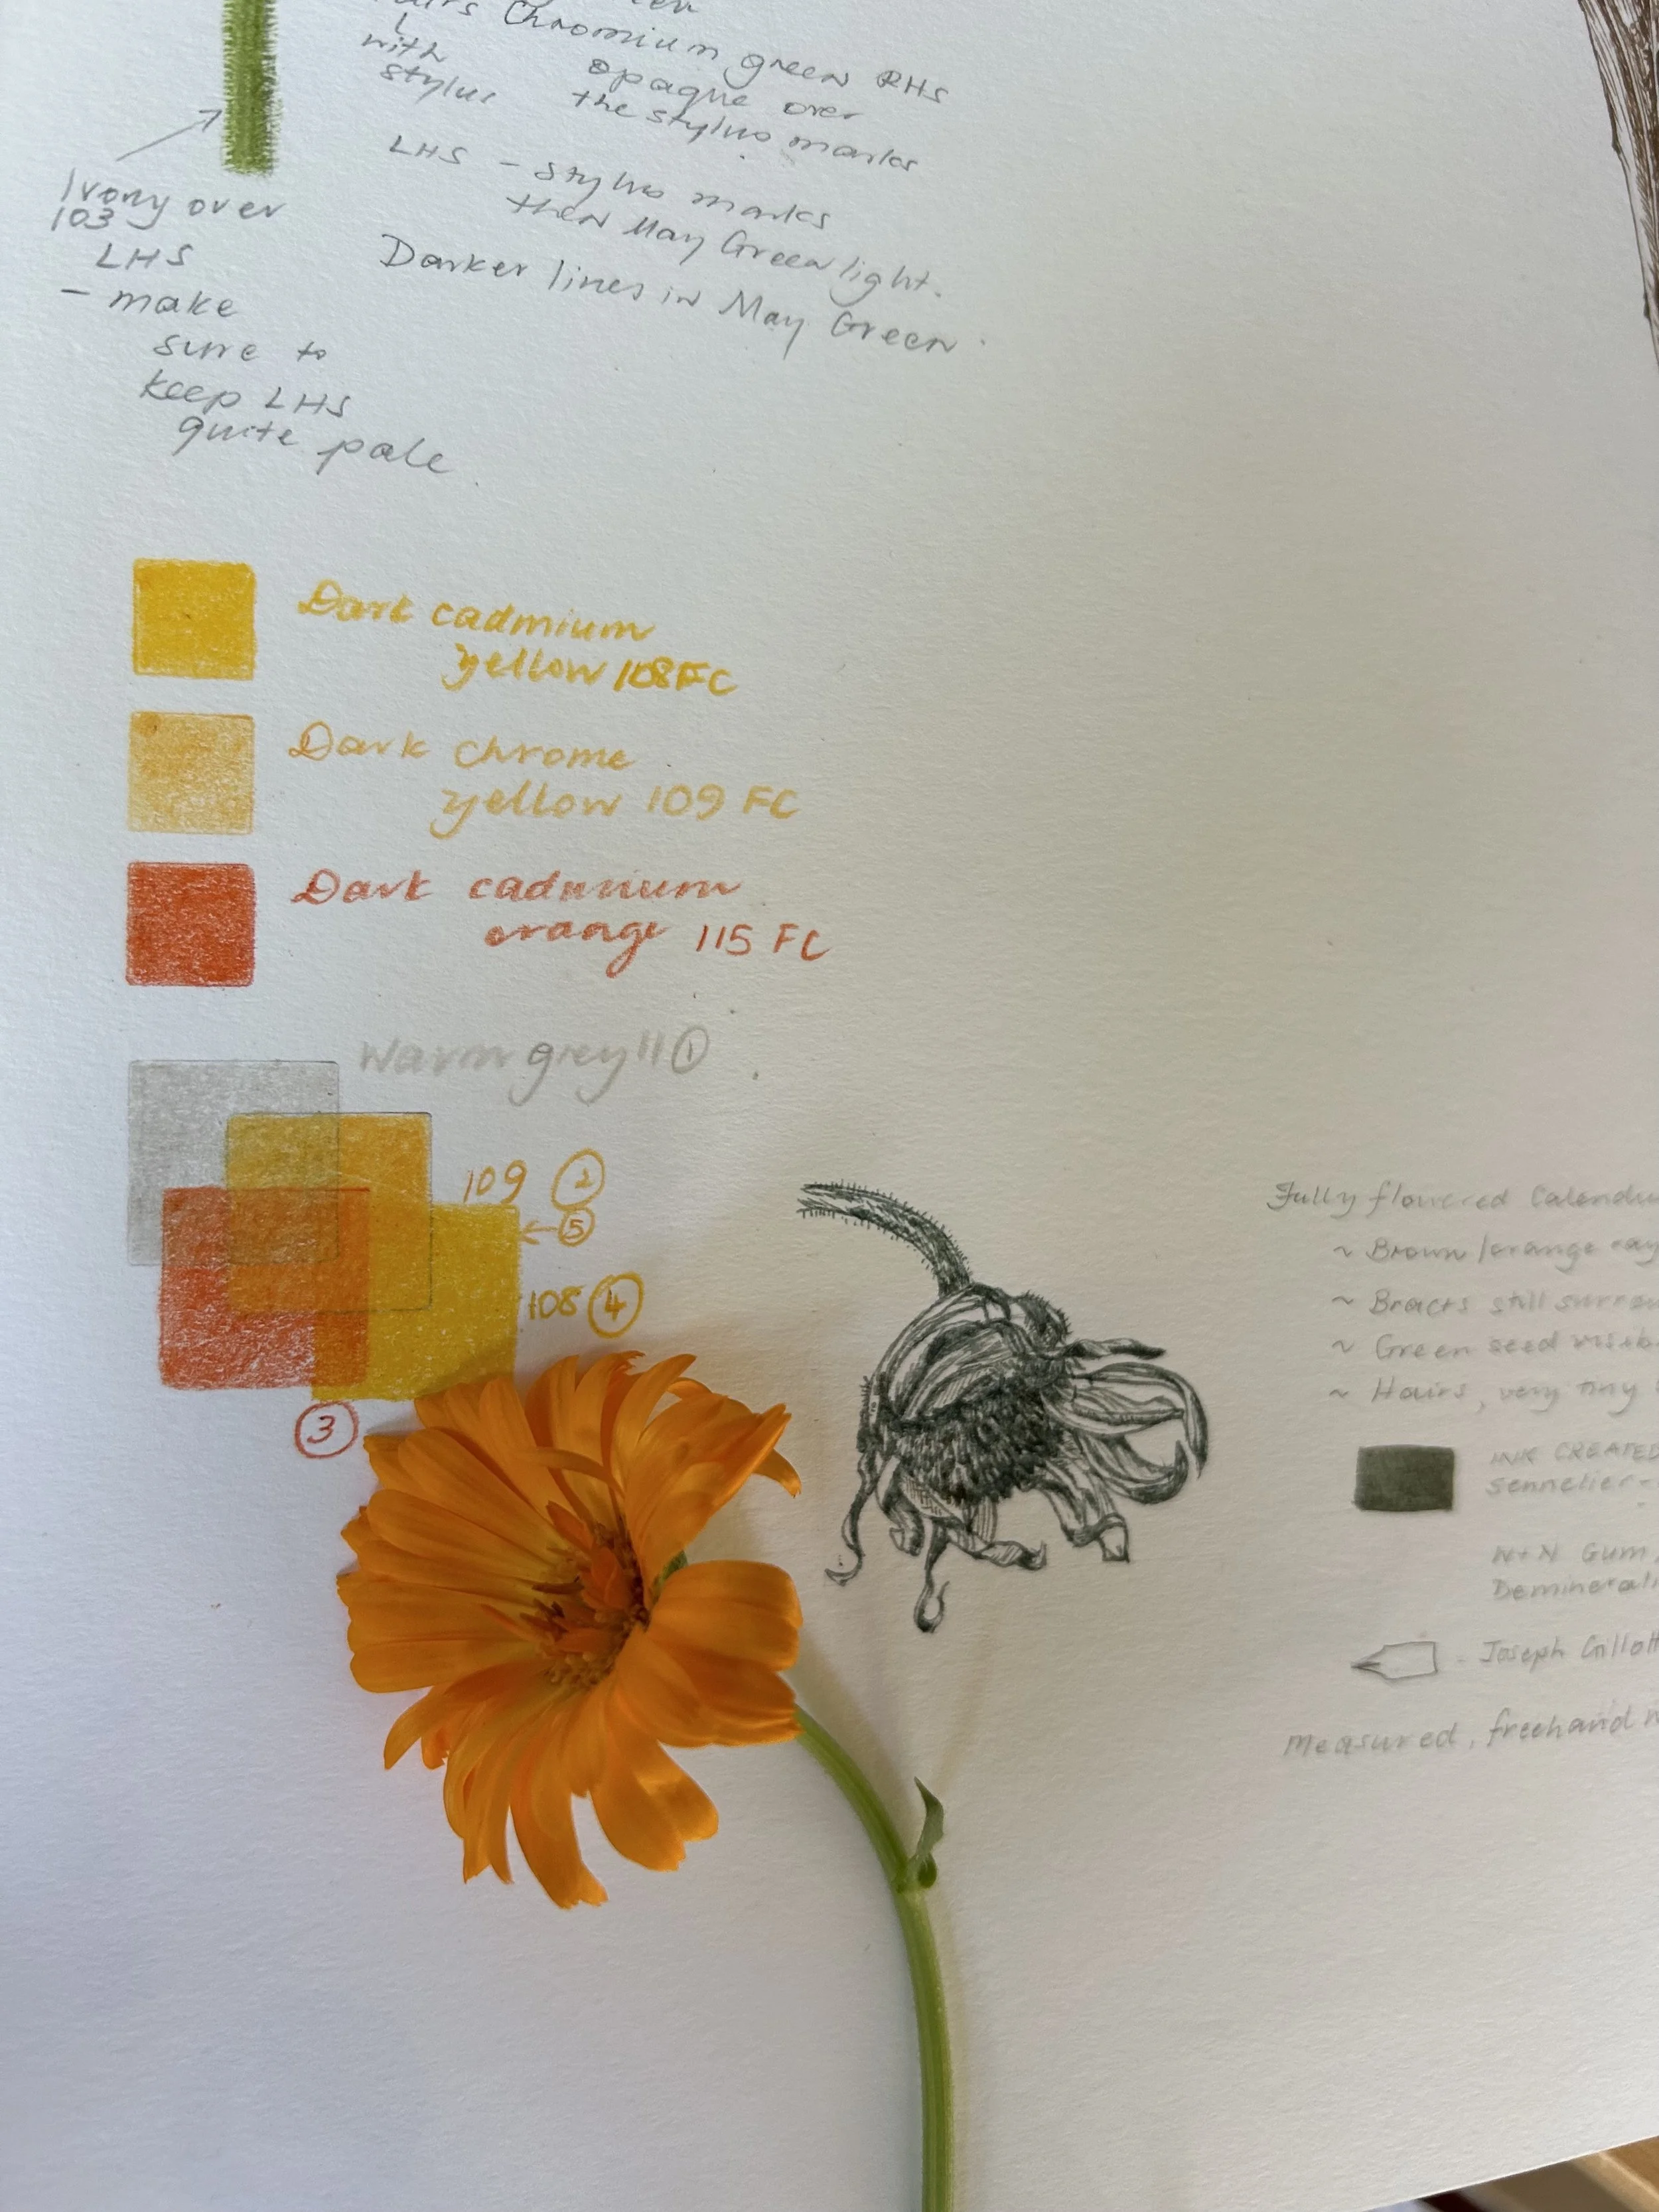 Chromium green RHS
with opaque over
stylus the stylus marks
LHS - stylus marks
then May Green light.
Darker lines in May Green.
Ivory over
103
LHS
- make
sure to
keep LHS
quite pale
Dark cadmium
yellow 108 FC
Dark chrome
yellow 109 FC
Dark cadmium
orange 115 FC
Warm grey 11 1
109 2
5
108 4
3
Fully flowered
~ Brown/orange
~ Bracts still
~ Green seed
~ Hairs, very tiny
INK CREATED
Sennelier -
W+N Gum
- Joseph Gillott
Measured, freehand